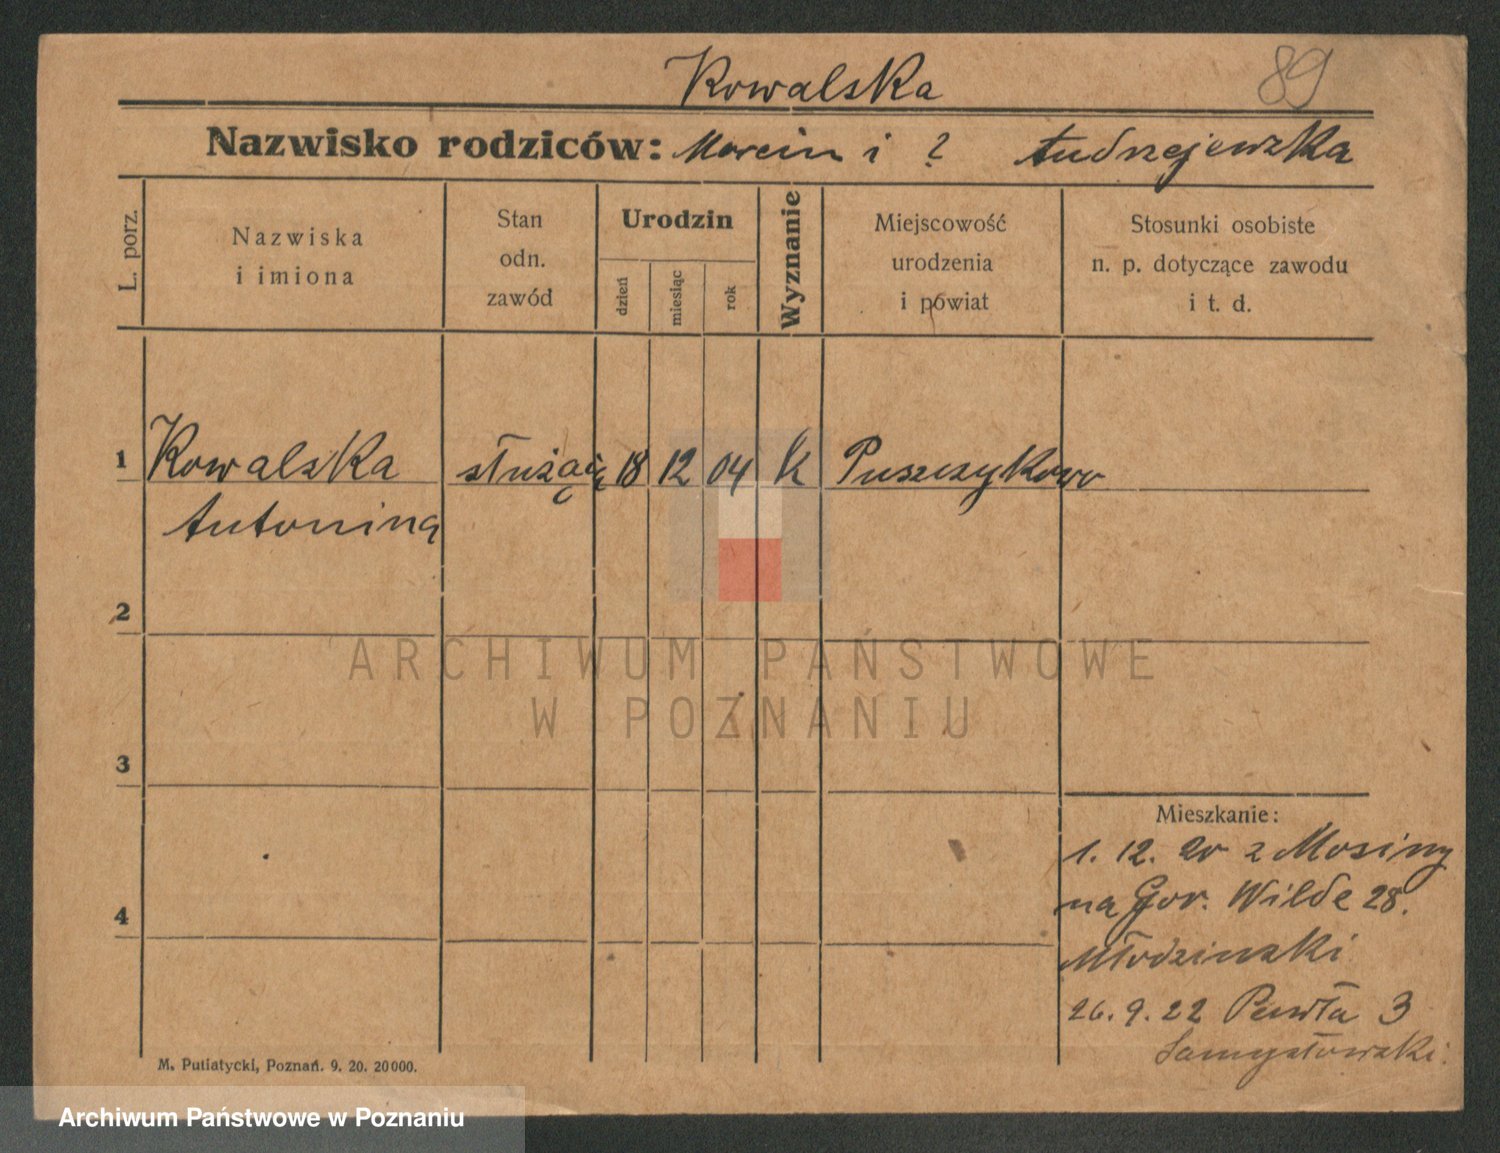 Kowalska
89
Nazwisko rodziców: Marcin i ? Andrzejewska
L. porz.
Nazwiska
i imiona
Stan
odn.
zawód
Urodzin
dzień
miesiąc
rok
Wyznanie
Miejscowość
urodzenia
i powiat
Stosunki osobiste
n. p. dotyczące zawodu
i t. d.
1 Kowalska służąca 18 12 04 k Puszczykowo
Antonina
2
ARCHIWUM PAŃSTWOWE
W POZNANIU
3
Mieszkanie:
1. 12. 20 z Mosiny
na Gor. Wilde 28.
4
Młodzinski
26. 9. 22 Pawła 3
Samysłowski
M. Putiatycki, Poznań. 9. 20. 20000.
Archiwum Państwowe w Poznaniu